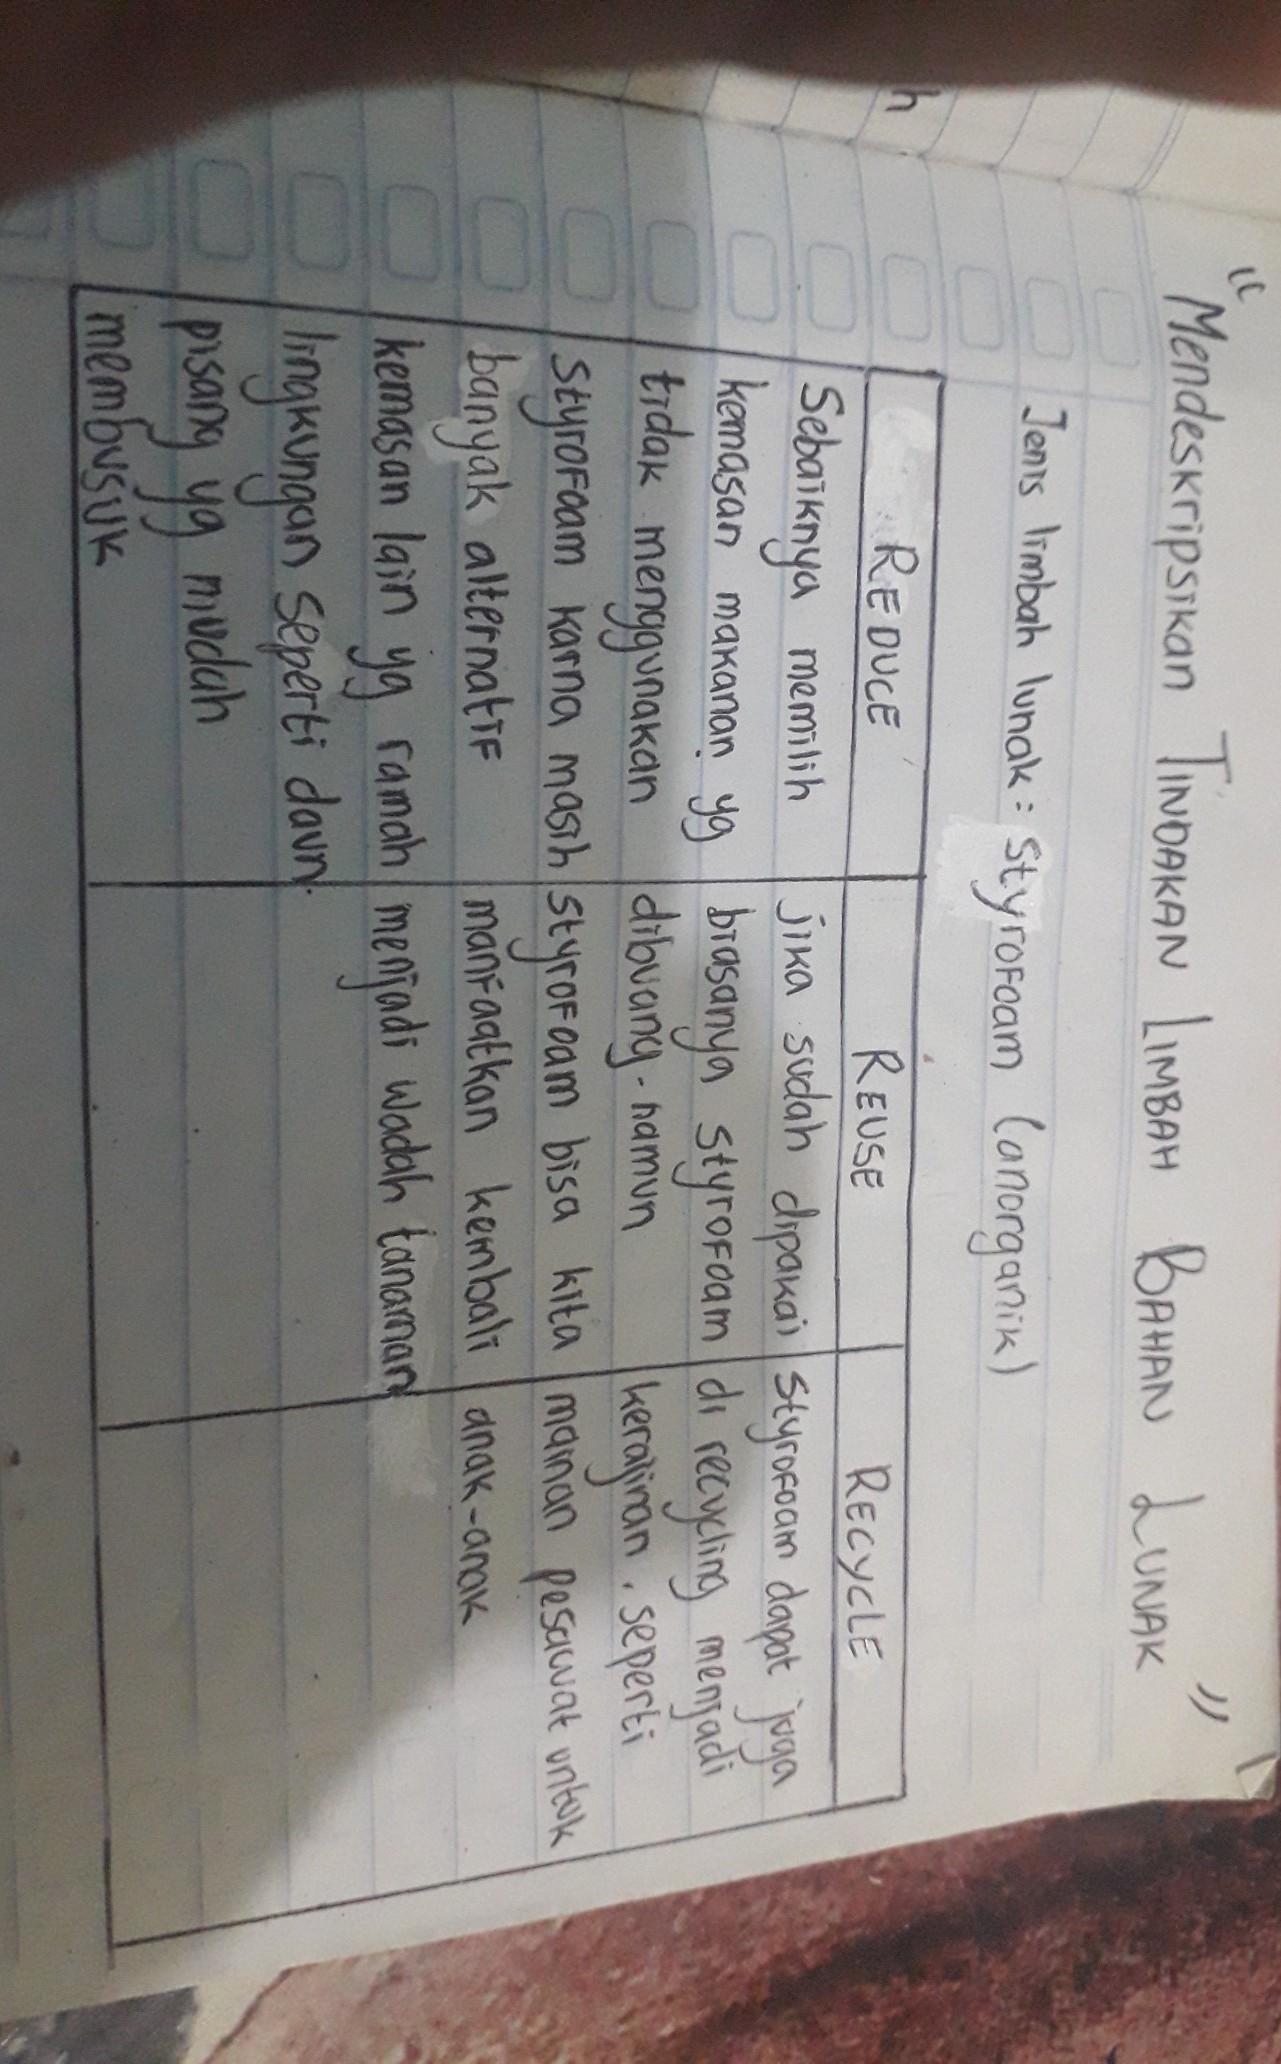 h
"Mendeskripsikan TINDAKAN LIMBAH BAHAN LUNAK"
Jenis limbah lunak : Styrofoam (anorganik)
REDUCE
Sebaiknya memilih
kemasan makanan yg
tidak menggunakan
Styrofoam karna masih
banyak alternatif
kemasan lain yg ramah
lingkungan seperti daun.
pisang yg mudah
membusuk
REUSE
jika sudah dipakai
biasanya styrofoam
dibuang - namun
styrofoam bisa kita
manfaatkan kembali
menjadi wadah tanaman
RECYCLE
Styrofoam dapat juga
di recycling menjadi
kerajinan. seperti
mainan pesawat untuk
anak-anak